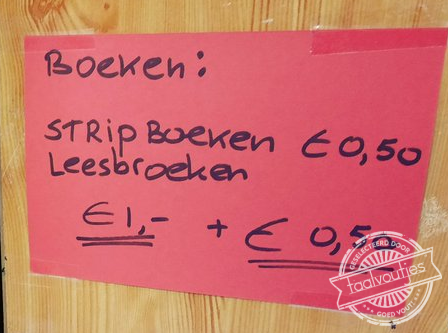 Boeken:
STRIPBOEKEN € 0,50
Leesbroeken
€ 1,- + € 0,5
GESELECTEERD DOOR
taalvoutjes
GOED VOUT